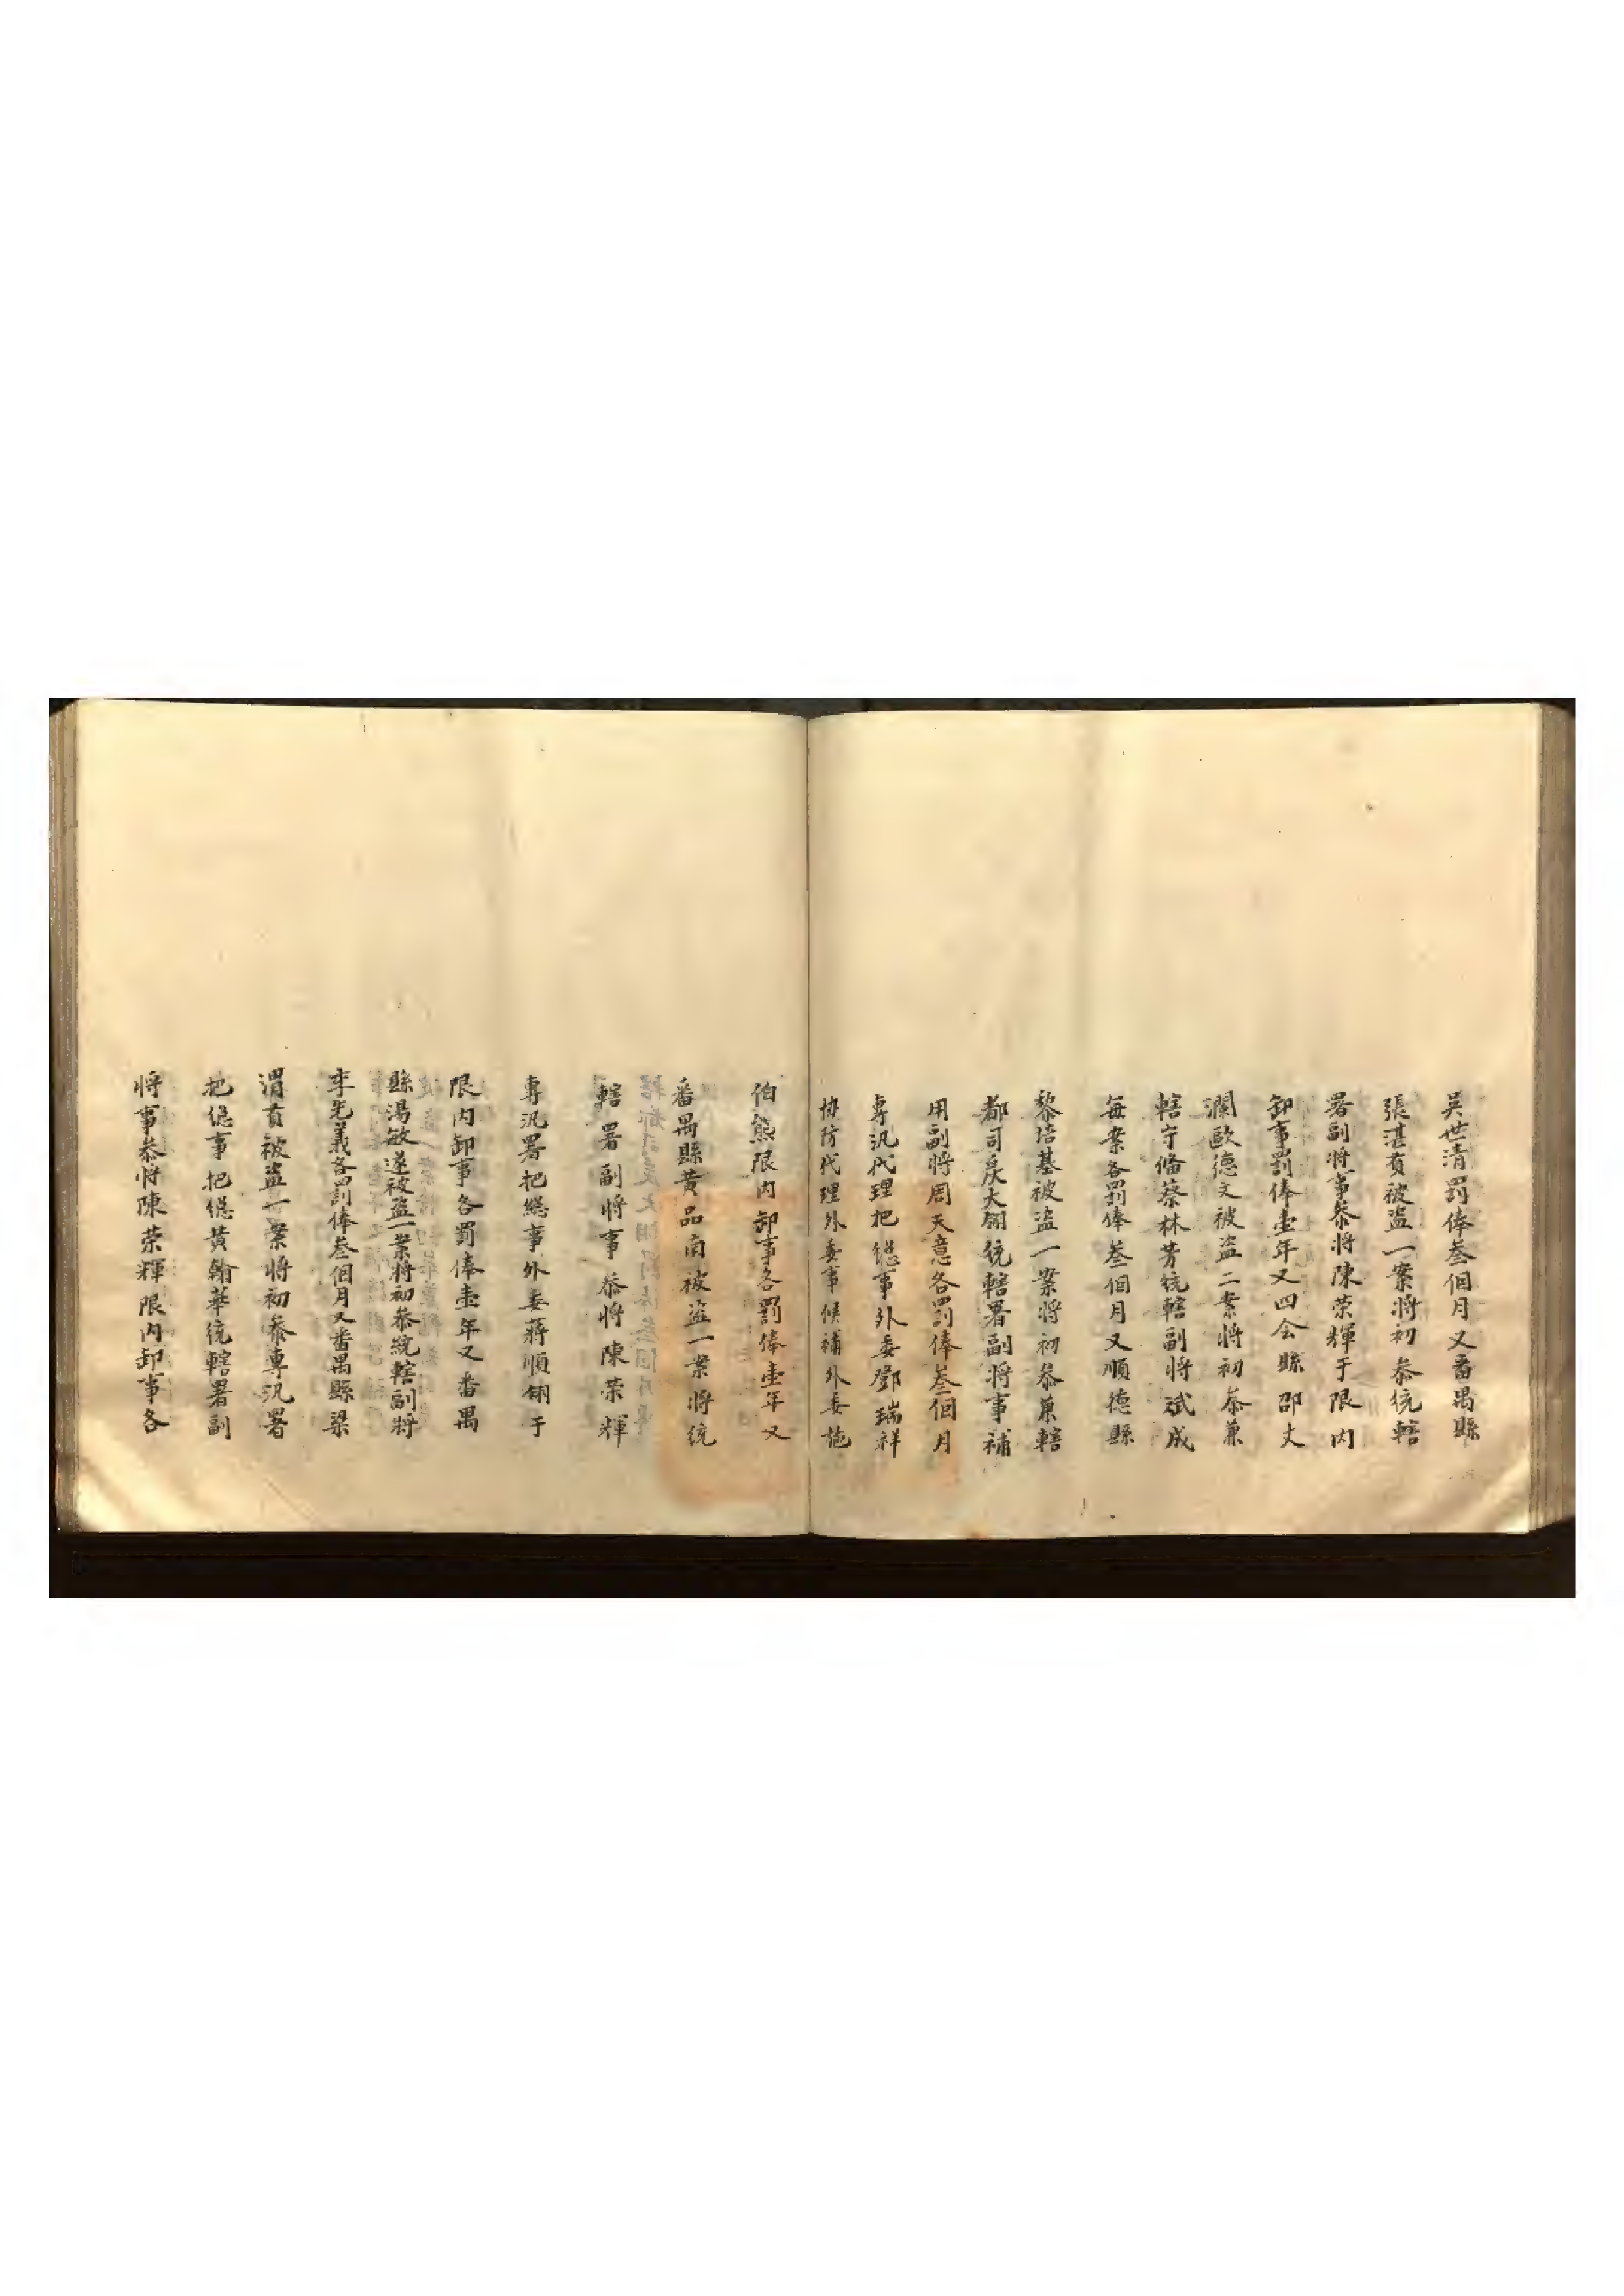 吳世清罰俸叁個月又番禺縣
張湛有被盜一案將初叅統轄
署副將事叅將陳荣輝于限內
卸事罰俸壹年又四会縣邵丈
瀾歐德文被盜二案將初叅兼
轄守俻蔡林芳統轄副將斌成
每案各罰俸叁個月又順德縣
黎培基被盜一案將初叅兼轄
都司戾大翮統轄署副將事補
用副將周天意各罰俸叁個月
專汛代理把總事外委鄧瑞祥
协防代理外委事候補外委施
伯熊限內卸事各罰俸壹年又
番禺縣黃品南被盜一案將統
轄署副將事叅將陳荣輝
專汛署把總事外委蔣順翎于
限內卸事各罰俸壹年又番禺
縣湯敏遂被盜一案將初叅統轄副將
李先義各罰俸叁個月又番禺縣梁
渭有被盜一案將初叅專汛署
把總事把總黃翰華統轄署副
將事叅將陳荣輝限內卸事各